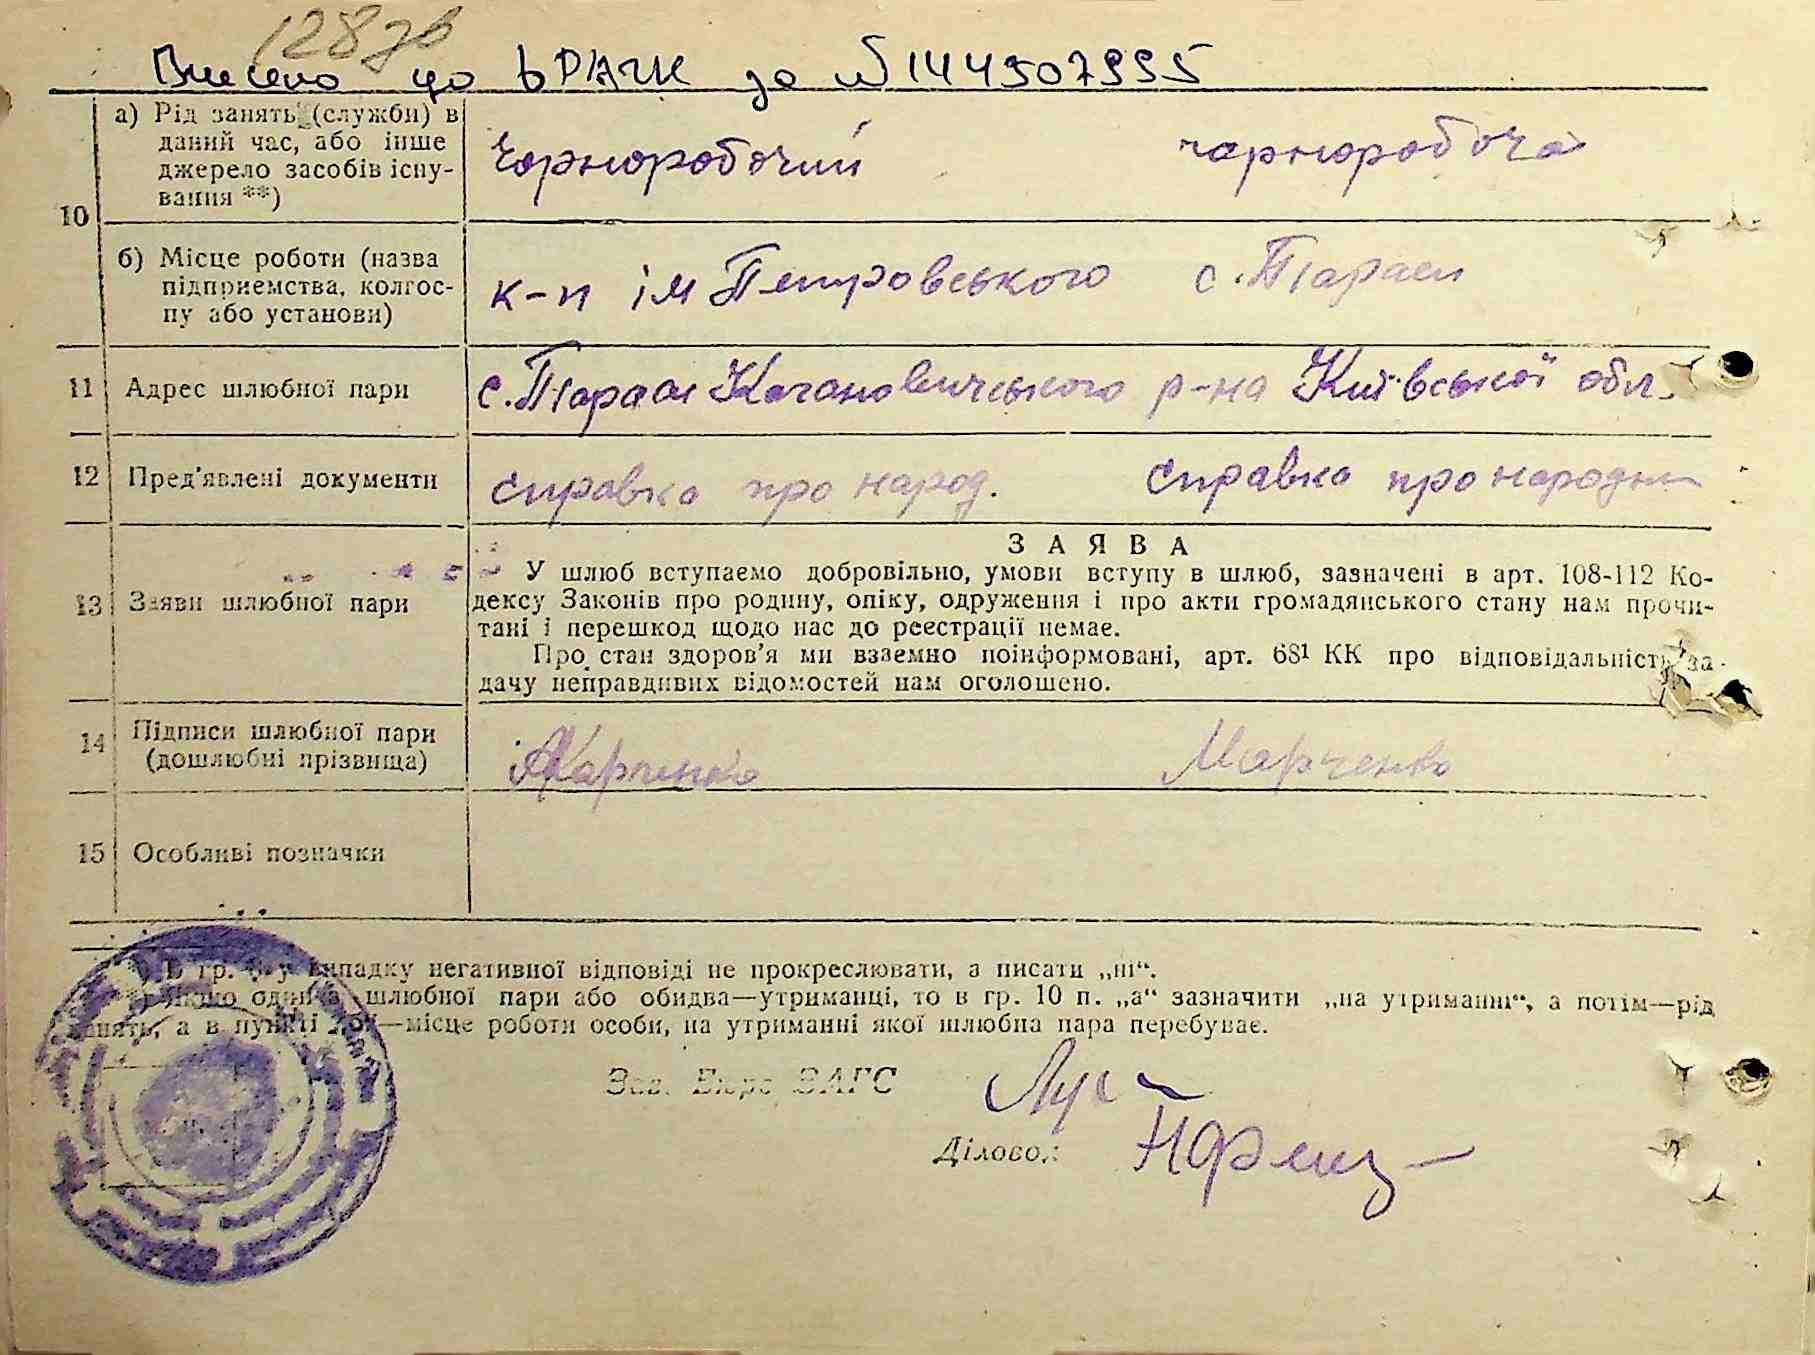 1287в
Внесено до ДРАЦС за №144507995
10
а) Рід занять (служби) в
даний час, або інше
джерело засобів існу-
вання **)
чорноробочий чарноробоча
б) Місце роботи (назва
підприємства, колгос-
пу або установи)
к-п ім Петровського с. Тараси
11 Адрес шлюбної пари
с. Тараси Кагановичського р-на Київської обл.
12 Пред'явлені документи
справка про народ. справка про народжен
13 Заяви шлюбної пари
ЗАЯВА
У шлюб вступаємо добровільно, умови вступу в шлюб, зазначені в арт. 108-112 Ко-
дексу Законів про родину, опіку, одруження і про акти громадянського стану нам прочи-
тані і перешкод щодо нас до реєстрації немає.
Про стан здоров'я ми взаємно поінформовані, арт. 68¹ КК про відповідальність за
дачу неправдивих відомостей нам оголошено.
14 Підписи шлюбної пари
(дошлюбні прізвища)
Карпенко Марченко
15 Особливі позначки
В гр. у випадку негативної відповіді не прокреслювати, а писати „ні“.
Якщо один із шлюбної пари або обидва—утриманці, то в гр. 10 п. „а“ зазначити „на утриманні“, а потім—рід
занять, а в пункті „б“—місце роботи особи, на утриманні якої шлюбна пара перебуває.
Зав. Бюро ЗАГС
Діловод: